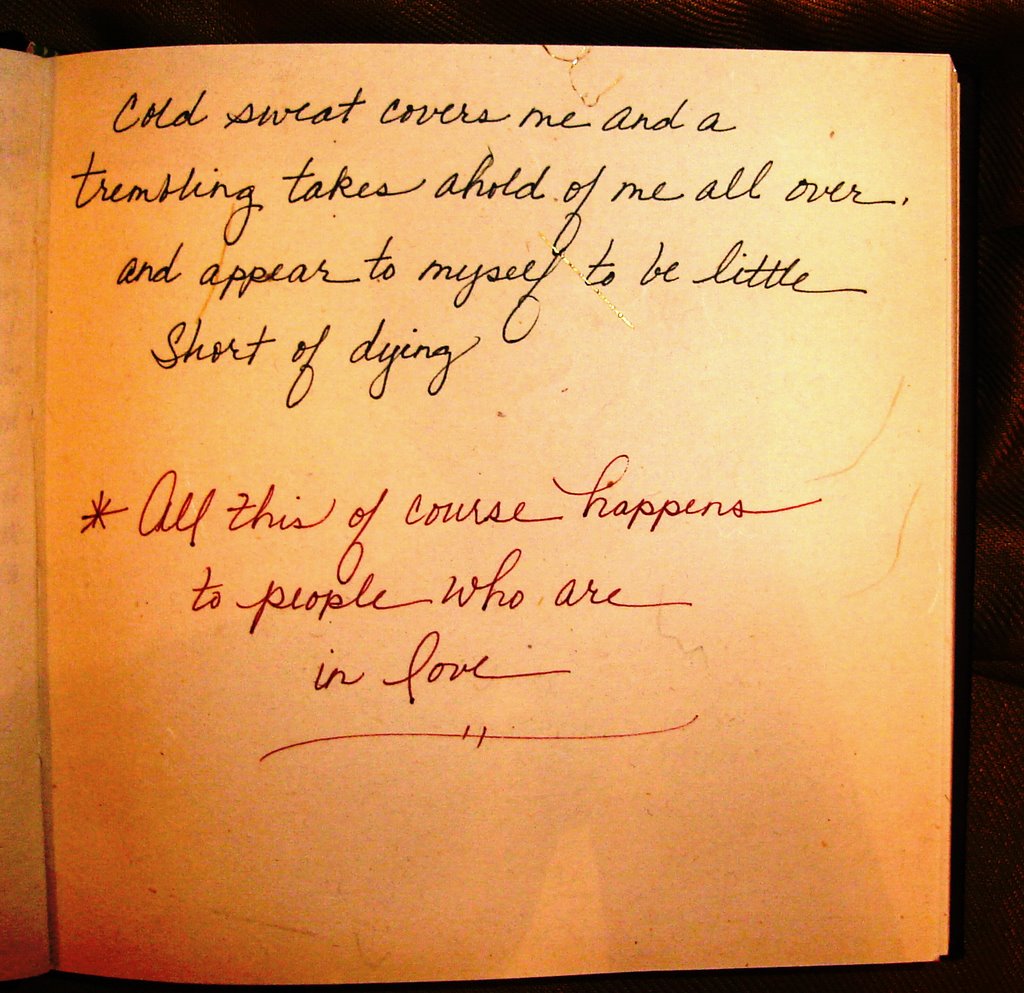 Cold sweat covers me and a
trembling takes ahold of me all over.
and appear to myself to be little
Short of dying
* All this of course happens
to people who are
in love